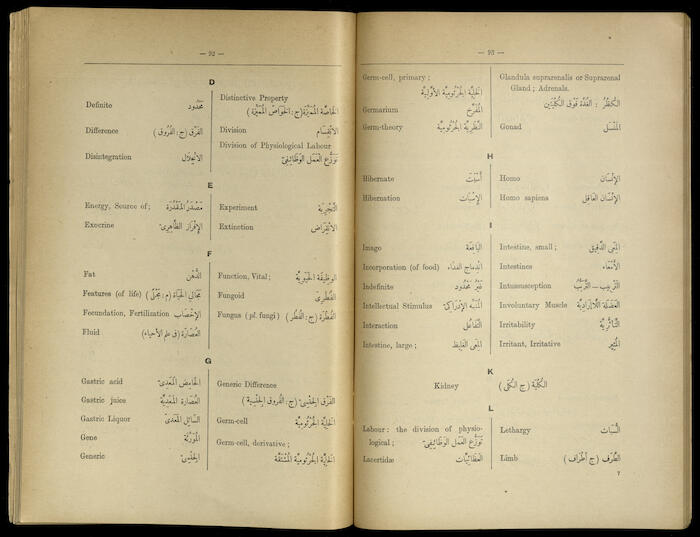 — 92 —
D
Definite مَحْدُود
Difference الفَرْق (ج: الفُرُوق)
Disintegration الانْحِلَال
Distinctive Property
الخَاصَّة المُمَيِّزَة (ج: الخَوَاصّ المُمَيِّزَة)
Division الانْقِسَام
Division of Physiological Labour
تَوَزُّع العَمَل الوَظَائِفِيّ
E
Energy, Source of; مَصْدَر المَقْدَرَة
Exocrine الإِفْرَاز الظَّاهِرِيّ
Experiment التَّجْرِبَة
Extinction الانْقِرَاض
F
Fat الدُّهْن
Features (of life) مَجَالِي الحَيَاة (م: مَجْلَى)
Fecundation, Fertilization الإِخْصَاب
Fluid العُصَارَة (في علم الأحياء)
Function, Vital; الوَظِيفَة الحَيَوِيَّة
Fungoid الفُطْرِيّ
Fungus (pl. fungi) الفُطْرَة (ج: الفُطْر)
G
Gastric acid الحَامِض المَعِدِيّ
Gastric juice العُصَارَة المَعِدِيَّة
Gastric Liquor السَّائِل المَعِدِيّ
Gene المُوَرِّثَة
Generic الجِنْسِيّ
Generic Difference
الفَرْق الجِنْسِيّ (ج: الفُرُوق الجِنْسِيَّة)
Germ-cell الخَلِيَّة الجُرْثُومِيَّة
Germ-cell, derivative;
الخَلِيَّة الجُرْثُومِيَّة المُشْتَقَّة
— 93 —
Germ-cell, primary;
الخَلِيَّة الجُرْثُومِيَّة الأَوَّلِيَّة
Germarium المُفَرِّخ
Germ-theory النَّظَرِيَّة الجُرْثُومِيَّة
Glandula suprarenalis or Suprarenal
Gland; Adrenals.
الكُظْر : الغُدَّة فَوْقَ الكُلْيَتَيْن
Gonad المَنْسَل
H
Hibernate أَسْبَتَ
Hibernation الإِسْبَات
Homo الإِنْسَان
Homo sapiens الإِنْسَان العَاقِل
I
Imago اليَافِعَة
Incorporation (of food) انْدِمَاج الغذاء
Indefinite غَيْر مَحْدُود
Intellectual Stimulus المُنَبِّه الإِدْرَاكِيّ
Interaction التَّفَاعُل
Intestine, large; المِعَى الغَلِيظ
Intestine, small; المِعَى الدَّقِيق
Intestines الأَمْعَاء
Intussusception
Involuntary Muscle العَضَلَة اللَّاإِرَادِيَّة
Irritability التَّأَثُّرِيَّة
Irritant, Irritative المُثِير
K
Kidney الكُلْيَة (ج الكُلَى)
L
Labour: the division of physio-
logical; تَوَزُّع العَمَل الوَظَائِفِيّ
Lacertidæ العَظَائِيَّات
Lethargy السُّبَات
Limb الطَّرَف (ج أَطْرَاف)
7